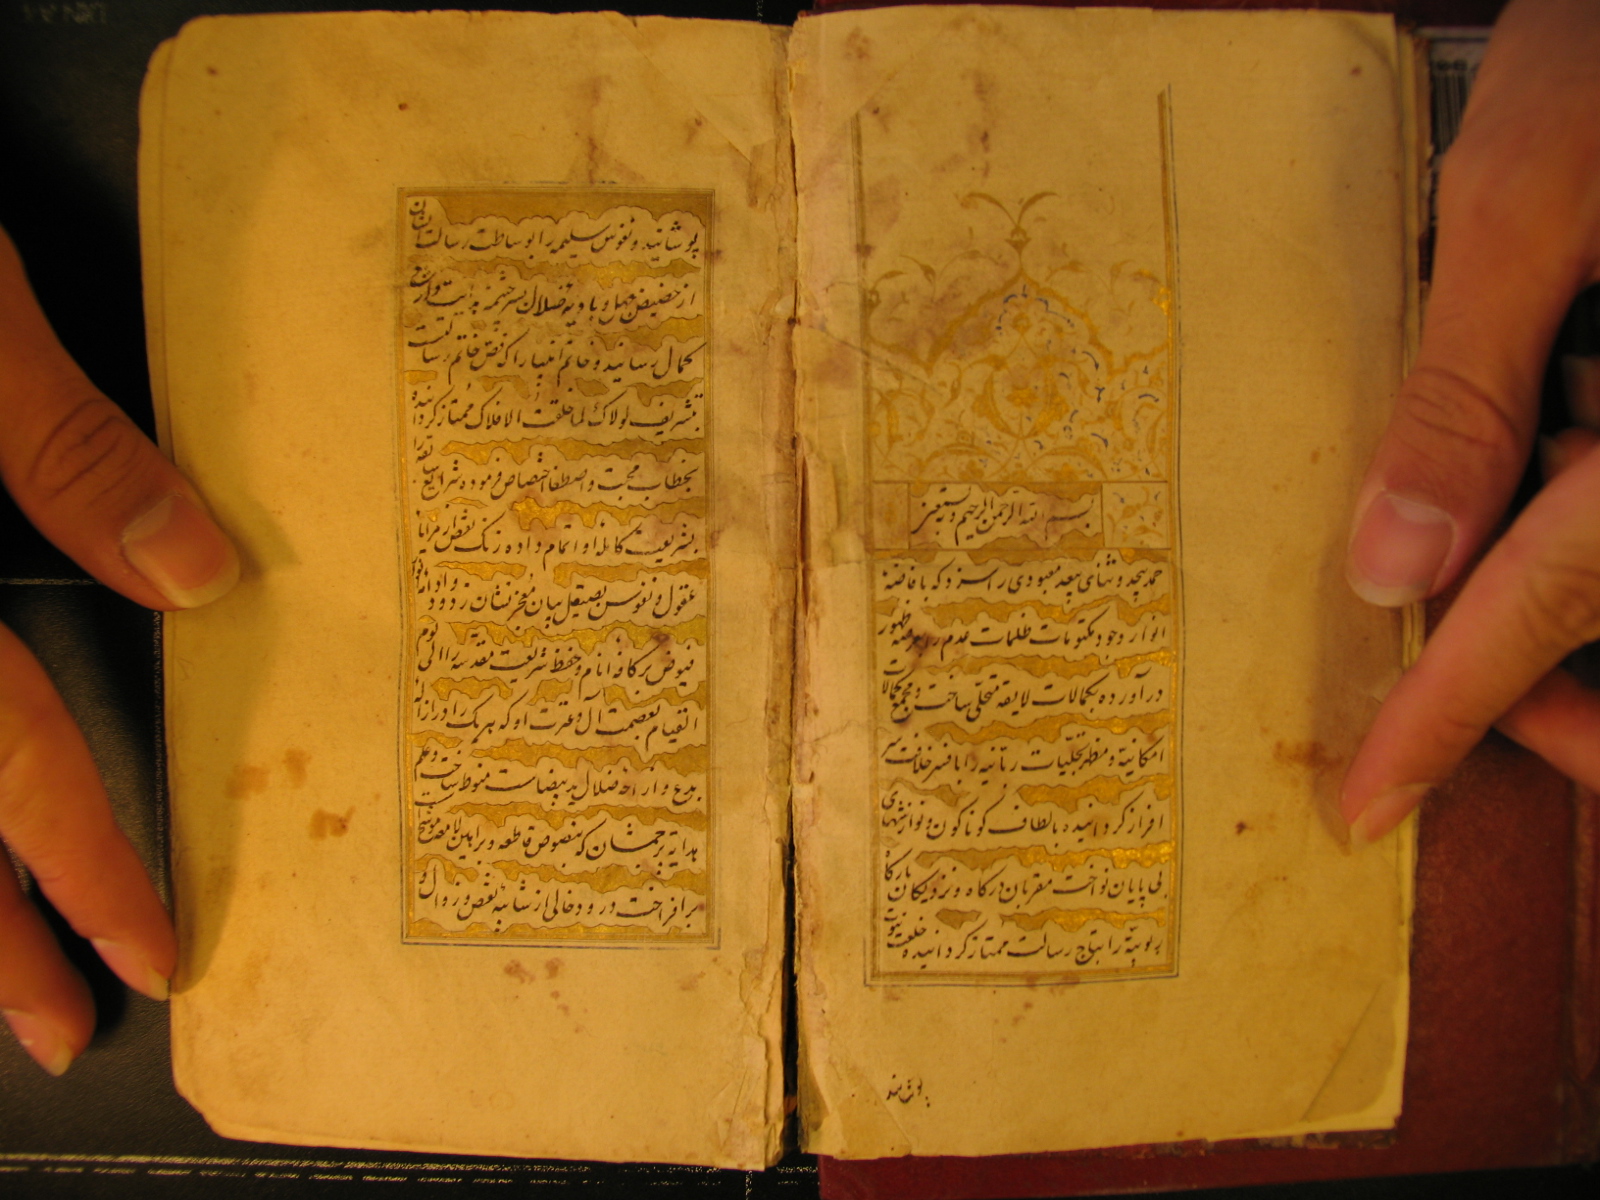 بسم الله الرحمن الرحیم وبه نستعین
حمد بیحد و ثنای بیعد معبودی را سزد که بافاضه
انوار وجود مکتومات ظلمات عدم را بعرصه ظهور
در آورده بکمالات لایقه متحلی ساخت و مجمع کمالات
امکانیة و مظهر تجلیات ربانیه را بافسر خلافت سر
افراز گردانیده بالطاف گوناگون و نوازشهای
بی پایان نواخت مقربان درگاه و نزدیکان بارگاه
ربوبیة را بتاج رسالت ممتاز گردانیده خلعت نبوت
پوشانید
پوشانید و نفوس سلیمه را بوساطت رسالت ایشان
از حضیض جهل و بادیه ضلال بسرچشمه هدایت و اوج
کمال رسانید و خاتم انبیا را که فص خاتم رسالتست
بتشریف لولاک لما خلقت الافلاک ممتاز گردانیده
بخطاب محبت و اصطفا اختصاص فرموده شرایع سابقه را
بشریعت کامله او اتمام داده زنگ نقض از مرایا
عقول و نفوس بصیقل بیان معجز نشان زدود و ادامه
فیوض بر کافه انام و حفظ شریعت مقدسه را الی یوم
القیام بعصمت آل و عترت او که هر یک را در ازاله
بدع و ازاحه ضلال ید بیضاست منوط ساخت و علم
هدایة بر جمشان که بنصوص قاطعه و براهین لامعه موشح است
برافراخت درود خالی از شائبه نقص و زوال و